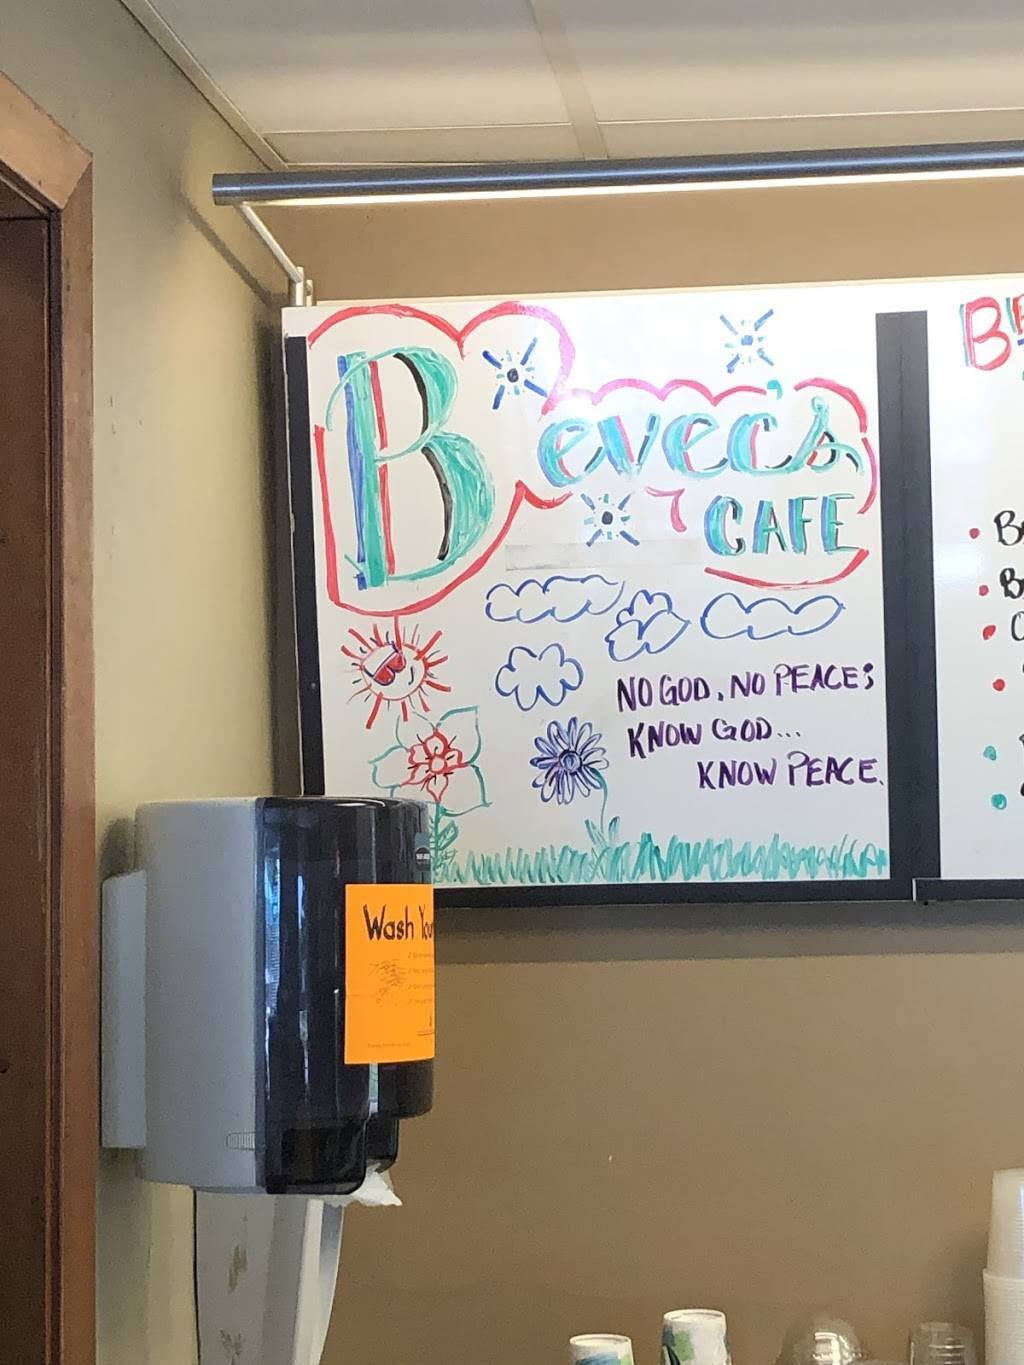 Bevec's
CAFE
NO GOD, NO PEACE;
KNOW GOD...
KNOW PEACE.
Wash